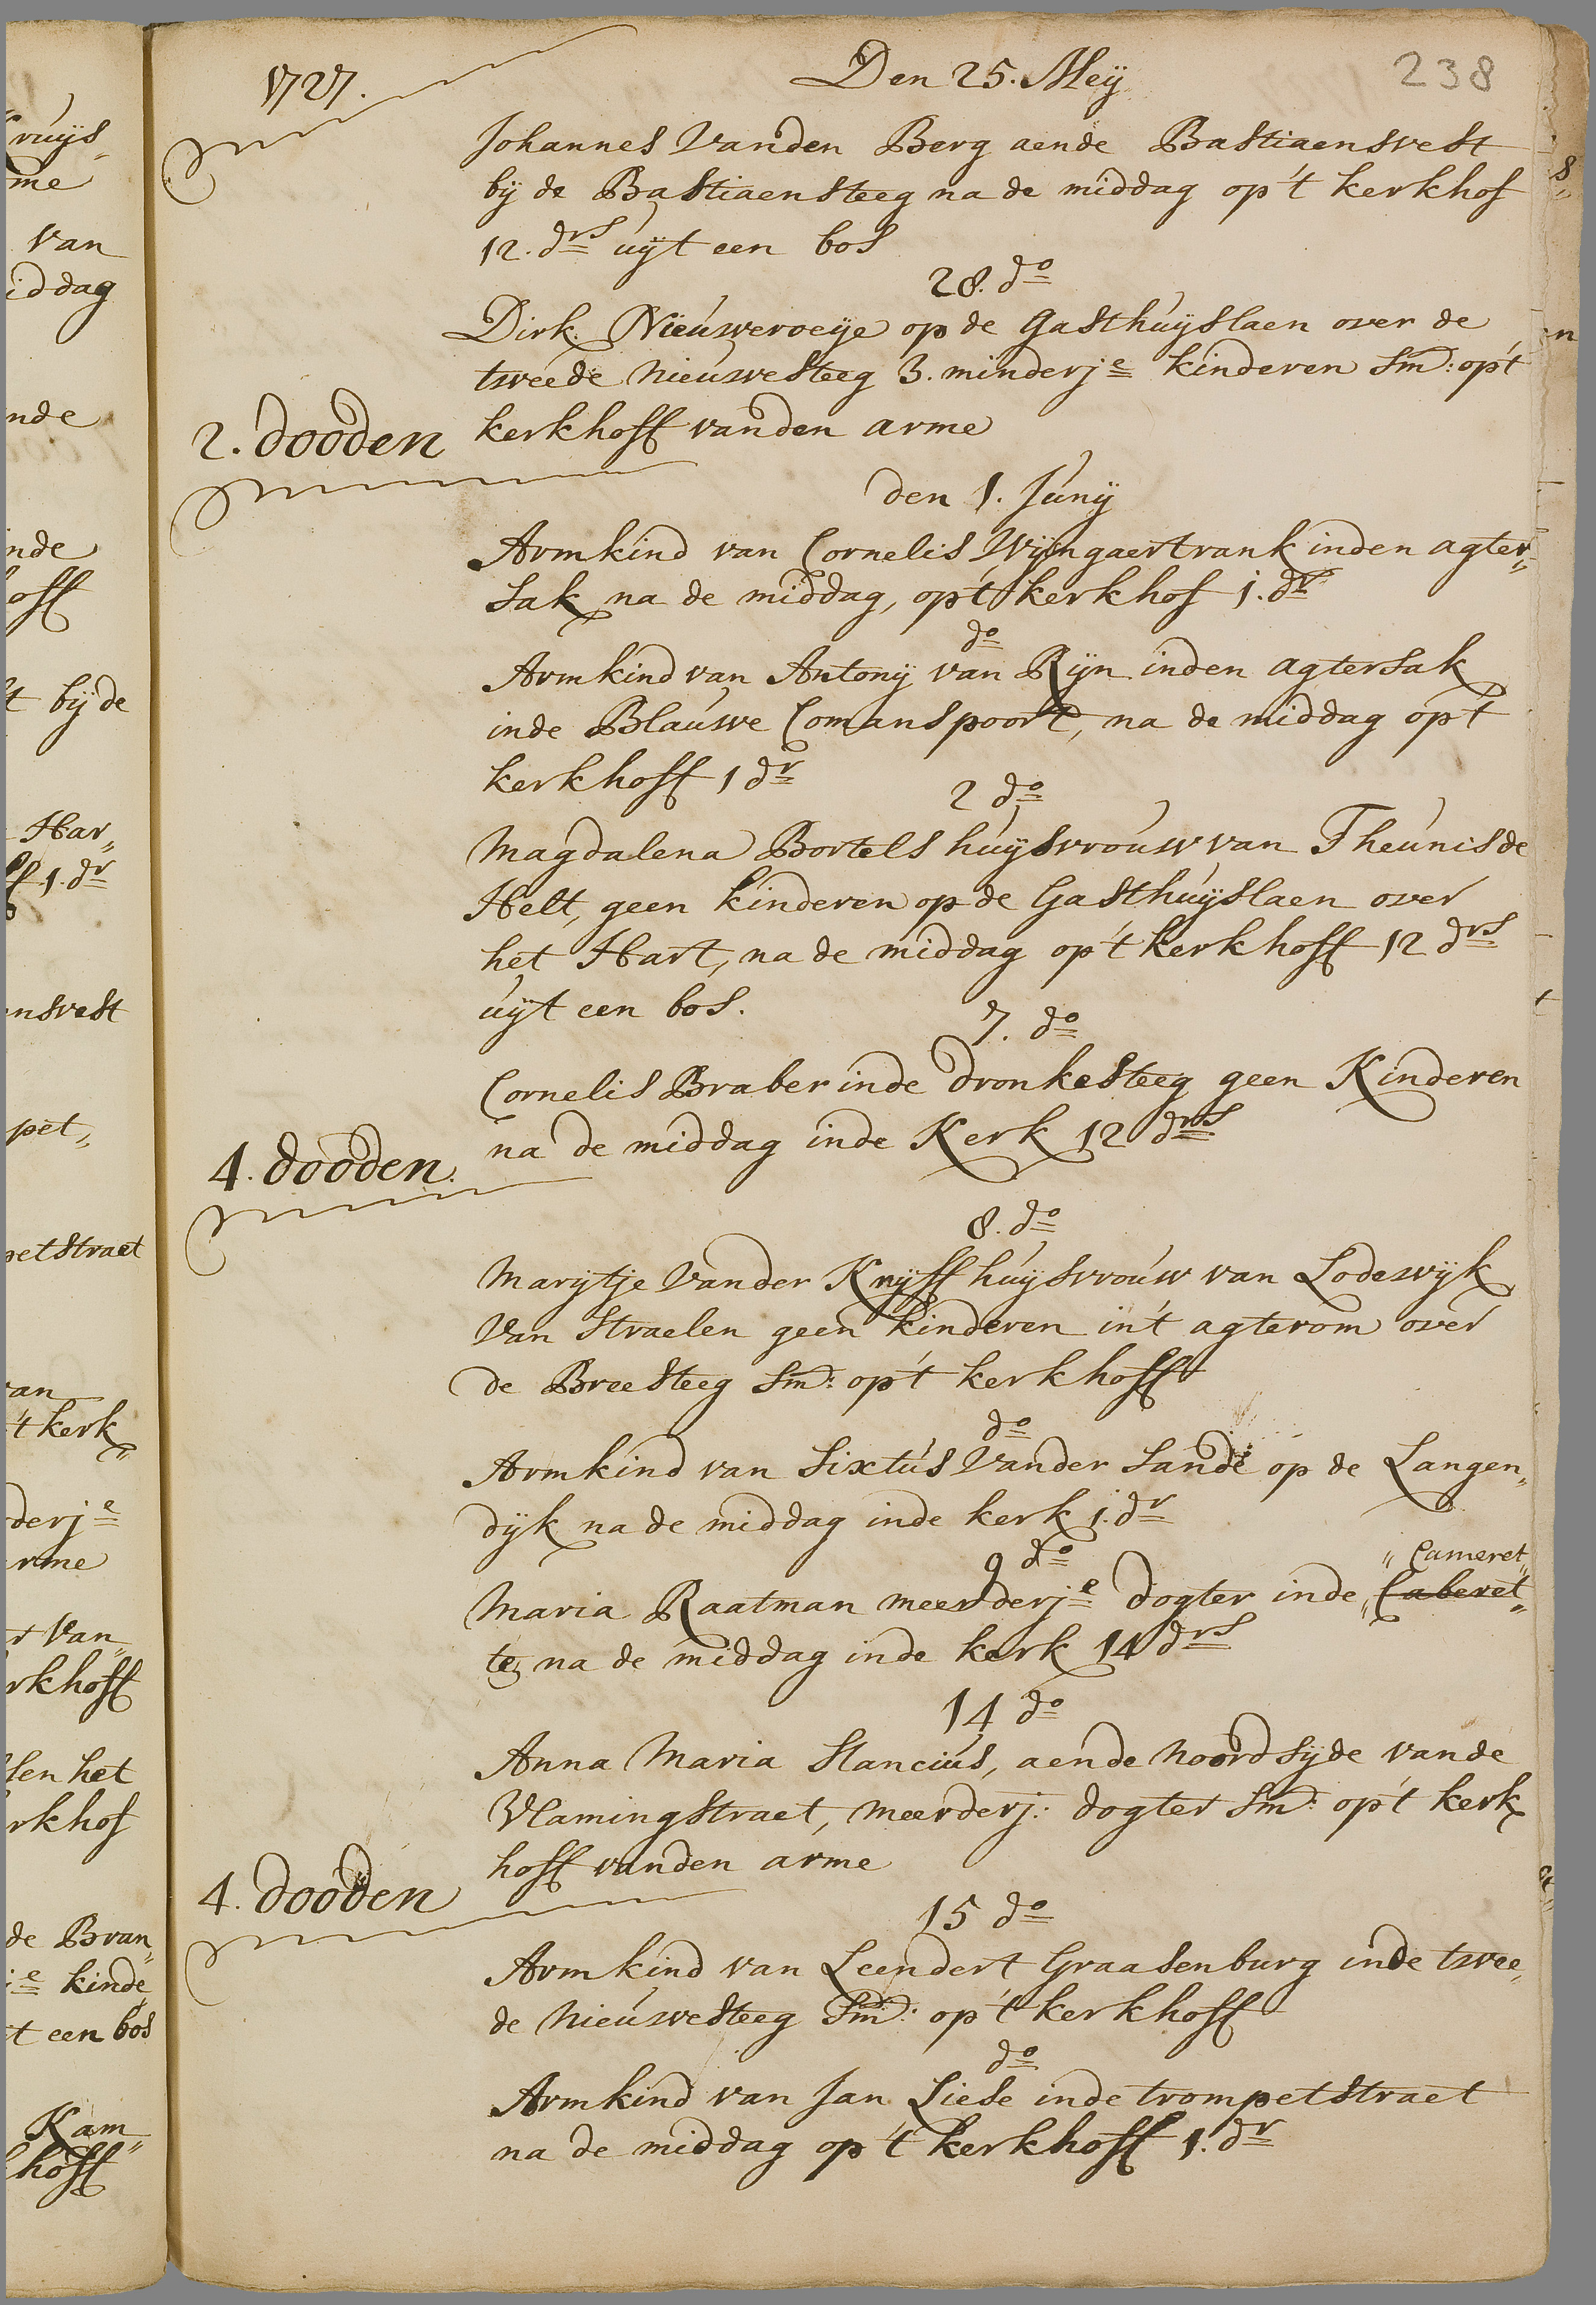 1727.
Den 25. Meÿ
238
Johannes vanden Berg aende Bastiaensvest
bij de Bastiaensteeg na de middag op't kerkhof
12. drs uijt een bos
28. do
Dirk Nieuweroeije op de Gasthuijslaen over de
tweede Nieuwesteeg 3. minderje kinderen Sm: op't
kerkhoff vanden arme
2. dooden
den 1. Junij
Armkind van Cornelis Wijngaertrank inden agter„
sak na de middag, op't kerkhof 1. dr
do
Armkind van Antonij van Rijn inden agtersak
inde Blauwe Comanspoort, na de middag op't
kerkhoff 1 dr
2 do
Magdalena Bortels huijsvrouw van Theunis de
Helt, geen kinderen op de Gasthuijslaen over
het Hart, na de middag op't kerkhoff 12 drs
uijt een bos.
7. do
Cornelis Braber inde dronkesteeg geen Kinderen
na de middag inde Kerk 12 drs
4. dooden.
8. do
Marijtje vander Knijff huijsvrouw van Lodewijk
van Straelen geen kinderen in't agterom over
de Breesteeg Sm: op't kerkhoff
do
Armkind van Sixtus vander Sande op de Langen„
dijk na de middag inde kerk 1. dr
9 do
„ Cameret„
Maria Raatman meerderje dogter inde „Caberet„
te, na de middag inde kerk 14 drs
14 do
Anna Maria Stancius, aende noordsijde vande
Vlamingstraet, meerderj: dogter Sm: op't kerk
hoff vanden arme
4. dooden
15 do
Armkind van Leendert Graasenburg inde twee„
de Nieuwesteeg Sm: op't kerkhoff
do
Armkind van Jan Liese inde trompetstraet
na de middag op't kerkhoff 1. dr